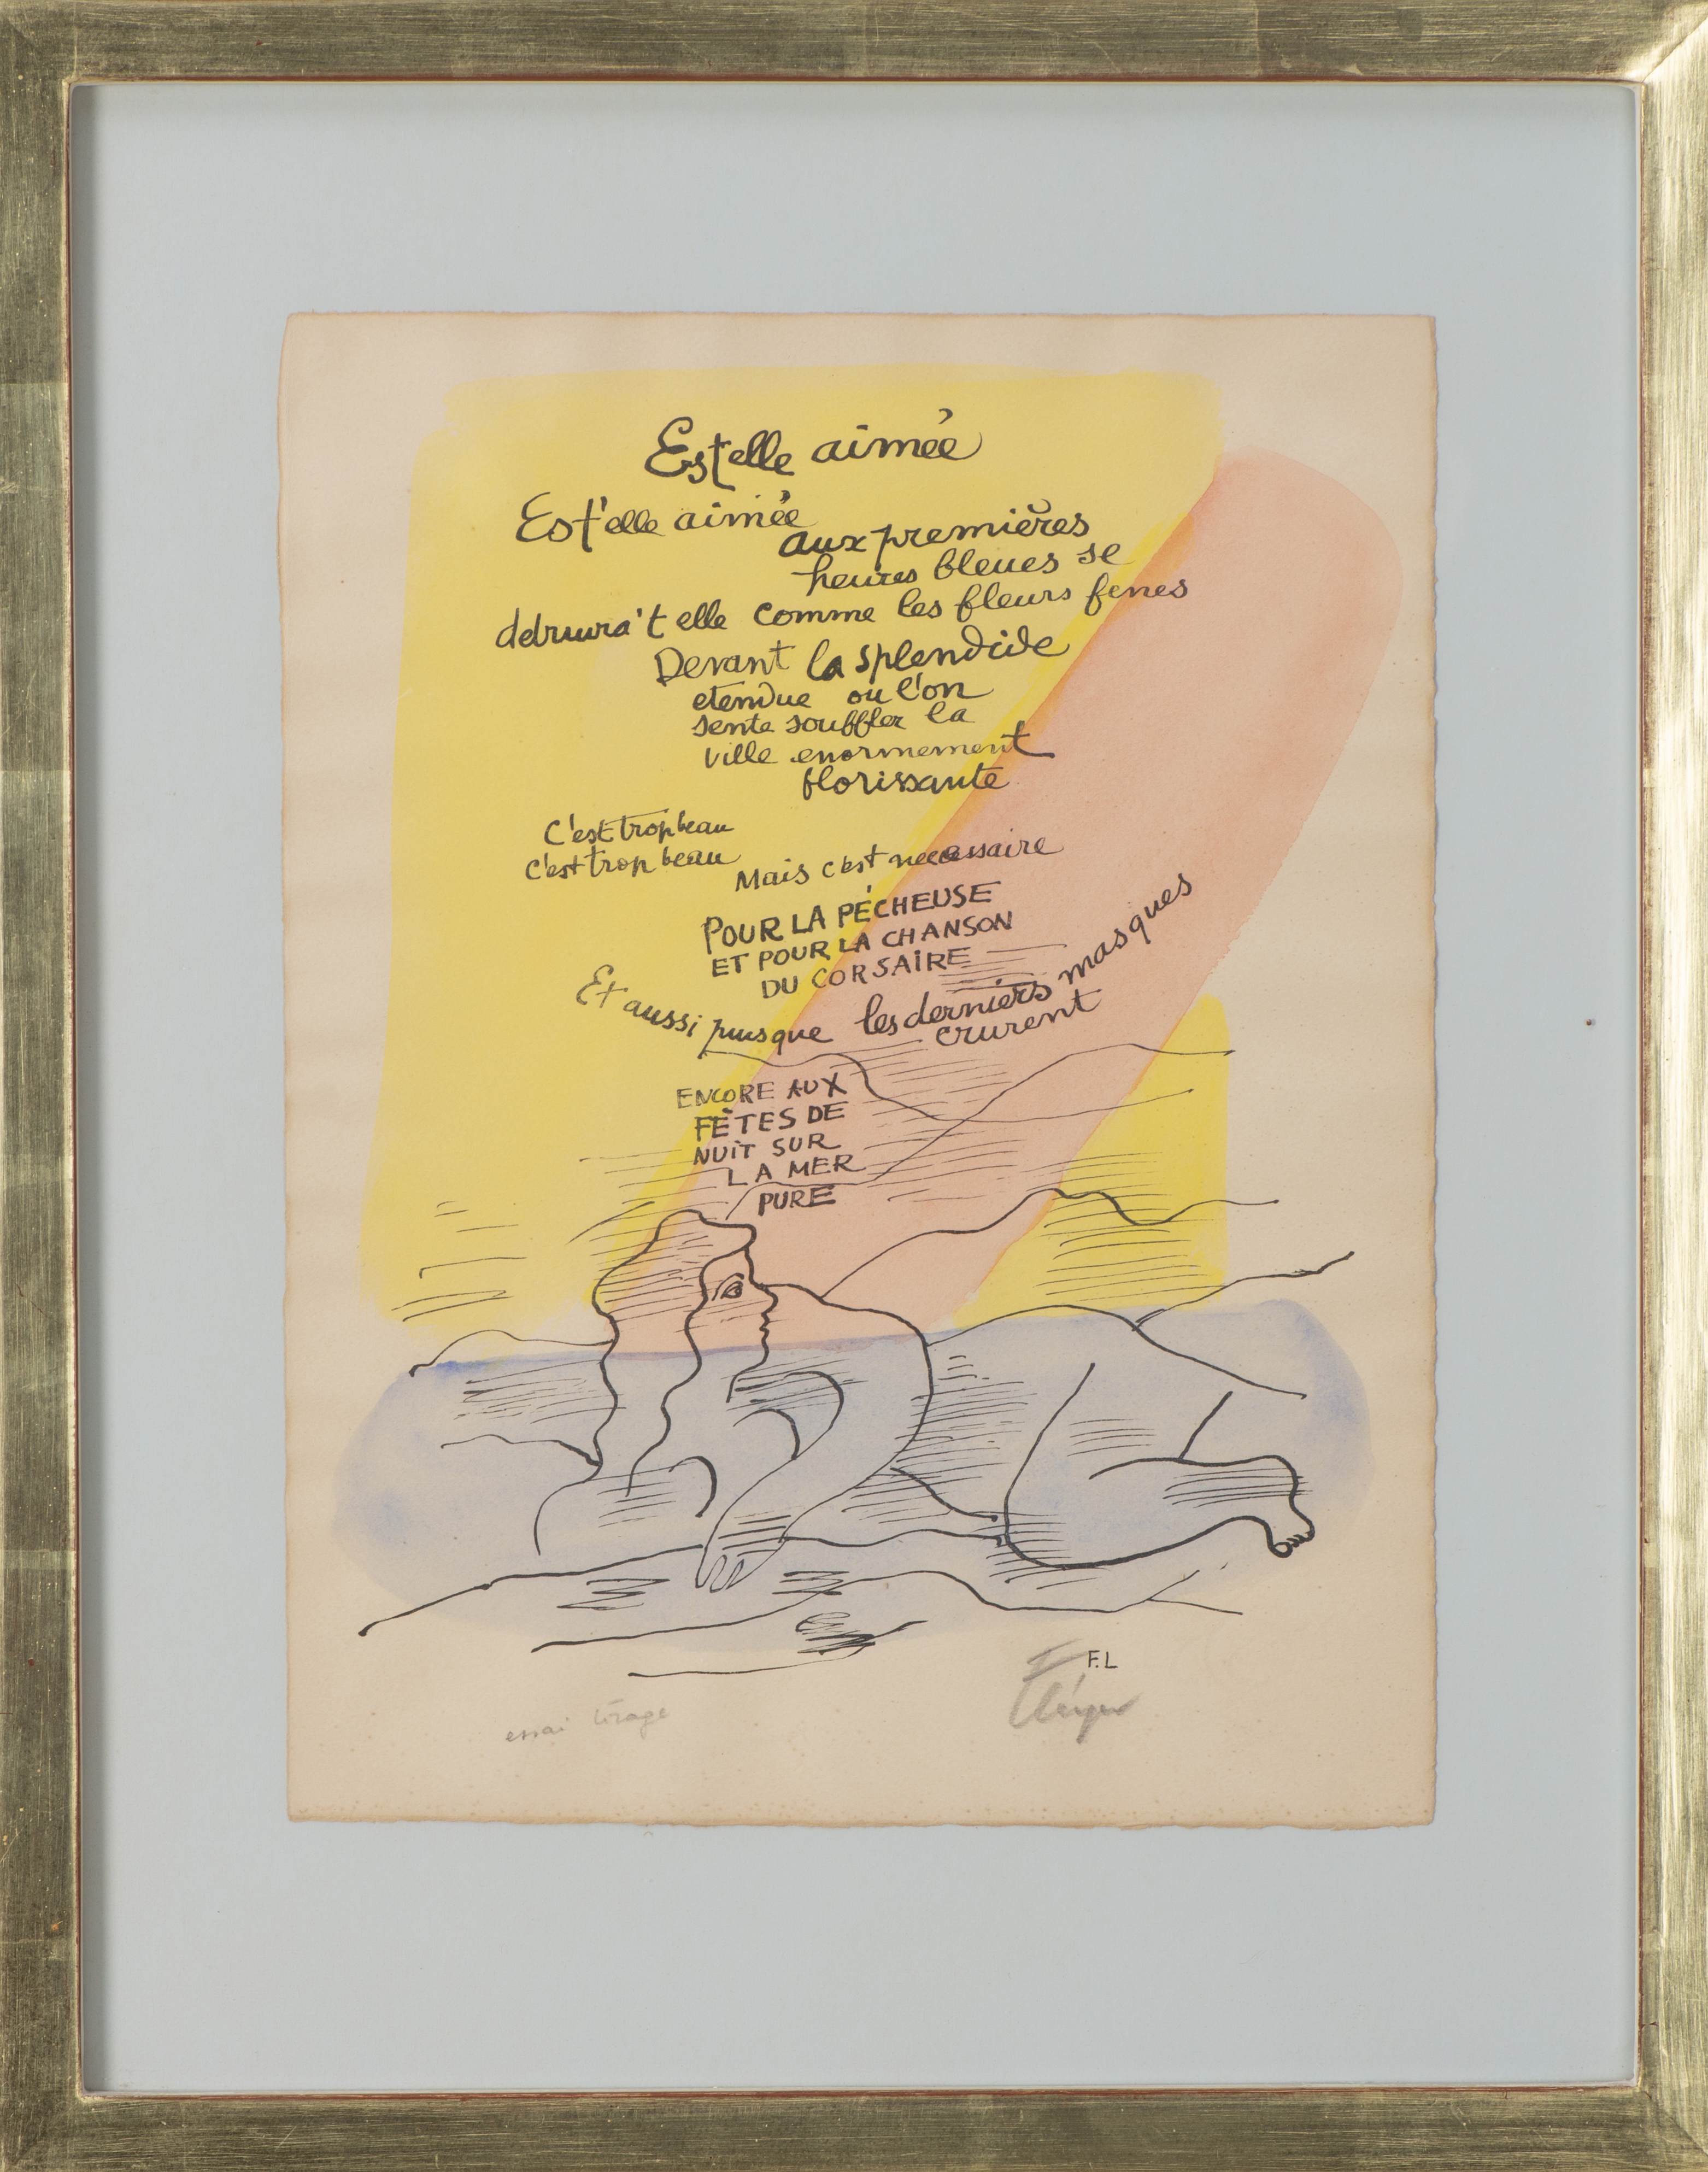 Est elle aimée
Est'elle aimée
aux premières
heures bleues se
detruira't elle comme les fleurs fenes
Devant la splendide
etendue où l'on
sente souffler la
ville enormement
florissante
C'est trop beau
c'est trop beau
Mais c'est necessaire
POUR LA PÉCHEUSE
ET POUR LA CHANSON
DU CORSAIRE
Et aussi puisque les derniers masques
crurent
ENCORE AUX
FÊTES DE
NUIT SUR
LA MER
PURE
F.L
F Léger
essai tirage